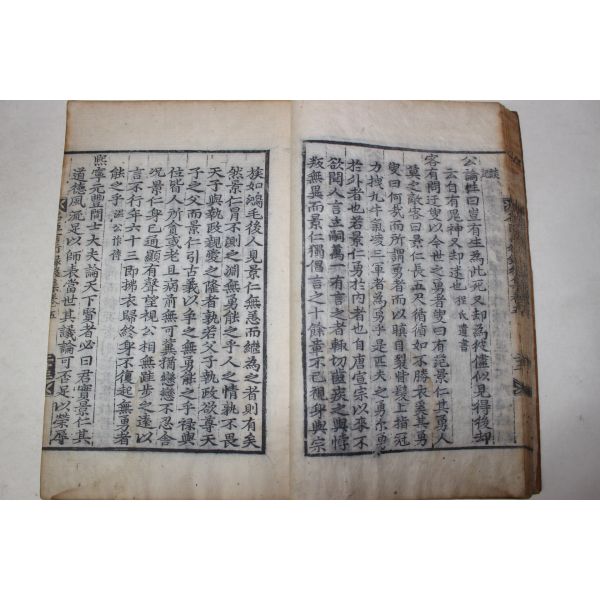 公論性曰豈有生為此死又却為從儘似見得後却
云自有鬼神又却迷也 程氏遺書
客有問迂叟以今世之勇者叟曰有范景仁其勇人
莫之敵客曰景仁長五尺循循如不勝衣奚其勇
叟曰何哉而所謂勇者而以瞋目裂眥髮上指冠
力曳九牛氣凌三軍者為勇乎是匹夫之勇
於外者也若景仁勇於內者也自唐宣宗以來不
欲聞人言立嗣萬一有言之者輒切齒疾之與倍
叛無異而景仁獨倡言之十餘章不已視身與宗
族如鴻毛後人見景仁無恙而繼為之者則有矣
然景仁冒不測之淵無勇能之乎人之情孰不畏
天子與執政親愛之隆者孰若父子執政欲尊天
子之父而景仁引古義以爭之無勇能之乎祿與
位皆人所貪或老且病前無可冀猶戀戀不忍舍
况景仁身已通顯有聲望視公相無跬步之遠以
言不行年六十三即拂衣歸終身不復起無勇者
能之乎 溫公作傳
熙寧元豐間士大夫論天下賢者必曰君實景仁其
道德風流足以師表當世其議論可否足以榮辱